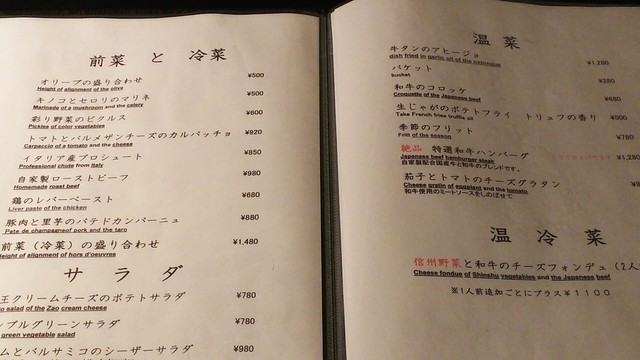 前菜 と 冷菜
オリーブの盛り合わせ ¥500
Height of alignment of the olive
キノコとセロリのマリネ ¥500
Marinade of a mushroom and the celery
彩り野菜のピクルス ¥600
Pickles of color vegetables
トマトとパルメザンチーズのカルパッチョ ¥920
Carpaccio of a tomato and the cheese
イタリア産プロシュート ¥850
Professional chute from Italy
自家製ローストビーフ ¥980
Homemade roast beef
鶏のレバーペースト ¥680
Liver paste of the chicken
豚肉と里芋のパテドカンパーニュ ¥880
Pate de champagneof pork and the taro
前菜（冷菜）の盛り合わせ ¥1,480
Height of alignment of hors d'oeuvres
サラダ
王クリームチーズのポテトサラダ ¥780
salad of the Zao cream cheese
ンプルグリーンサラダ ¥780
green vegetable salad
ムとバルサミコのシーザーサラダ ¥980
温 菜
牛タンのアヒージョ ¥1,280
dish fried in garlic oil of the
バケット ¥280
bucket
和牛のコロッケ ¥680
Croquette of the Japanese beef
生じゃがのポテトフライ トリュフの香り
Take French fries truffle oil
季節のフリット ¥780
Fritt of the season
絶品 特選和牛ハンバーグ ¥1,280
Japanese beef hamburger steak
自家製配合国産牛と和牛のブレンドです。
茄子とトマトのチーズグラタン
Cheese gratin of eggplant and the tomato
和牛使用のミートソースをしのばせて
温 冷 菜
信州野菜と和牛のチーズフォンデュ（2人
Cheese fondue of Shinshu vegetables and the Japanese beef
※1人前追加ごとにプラス¥1100